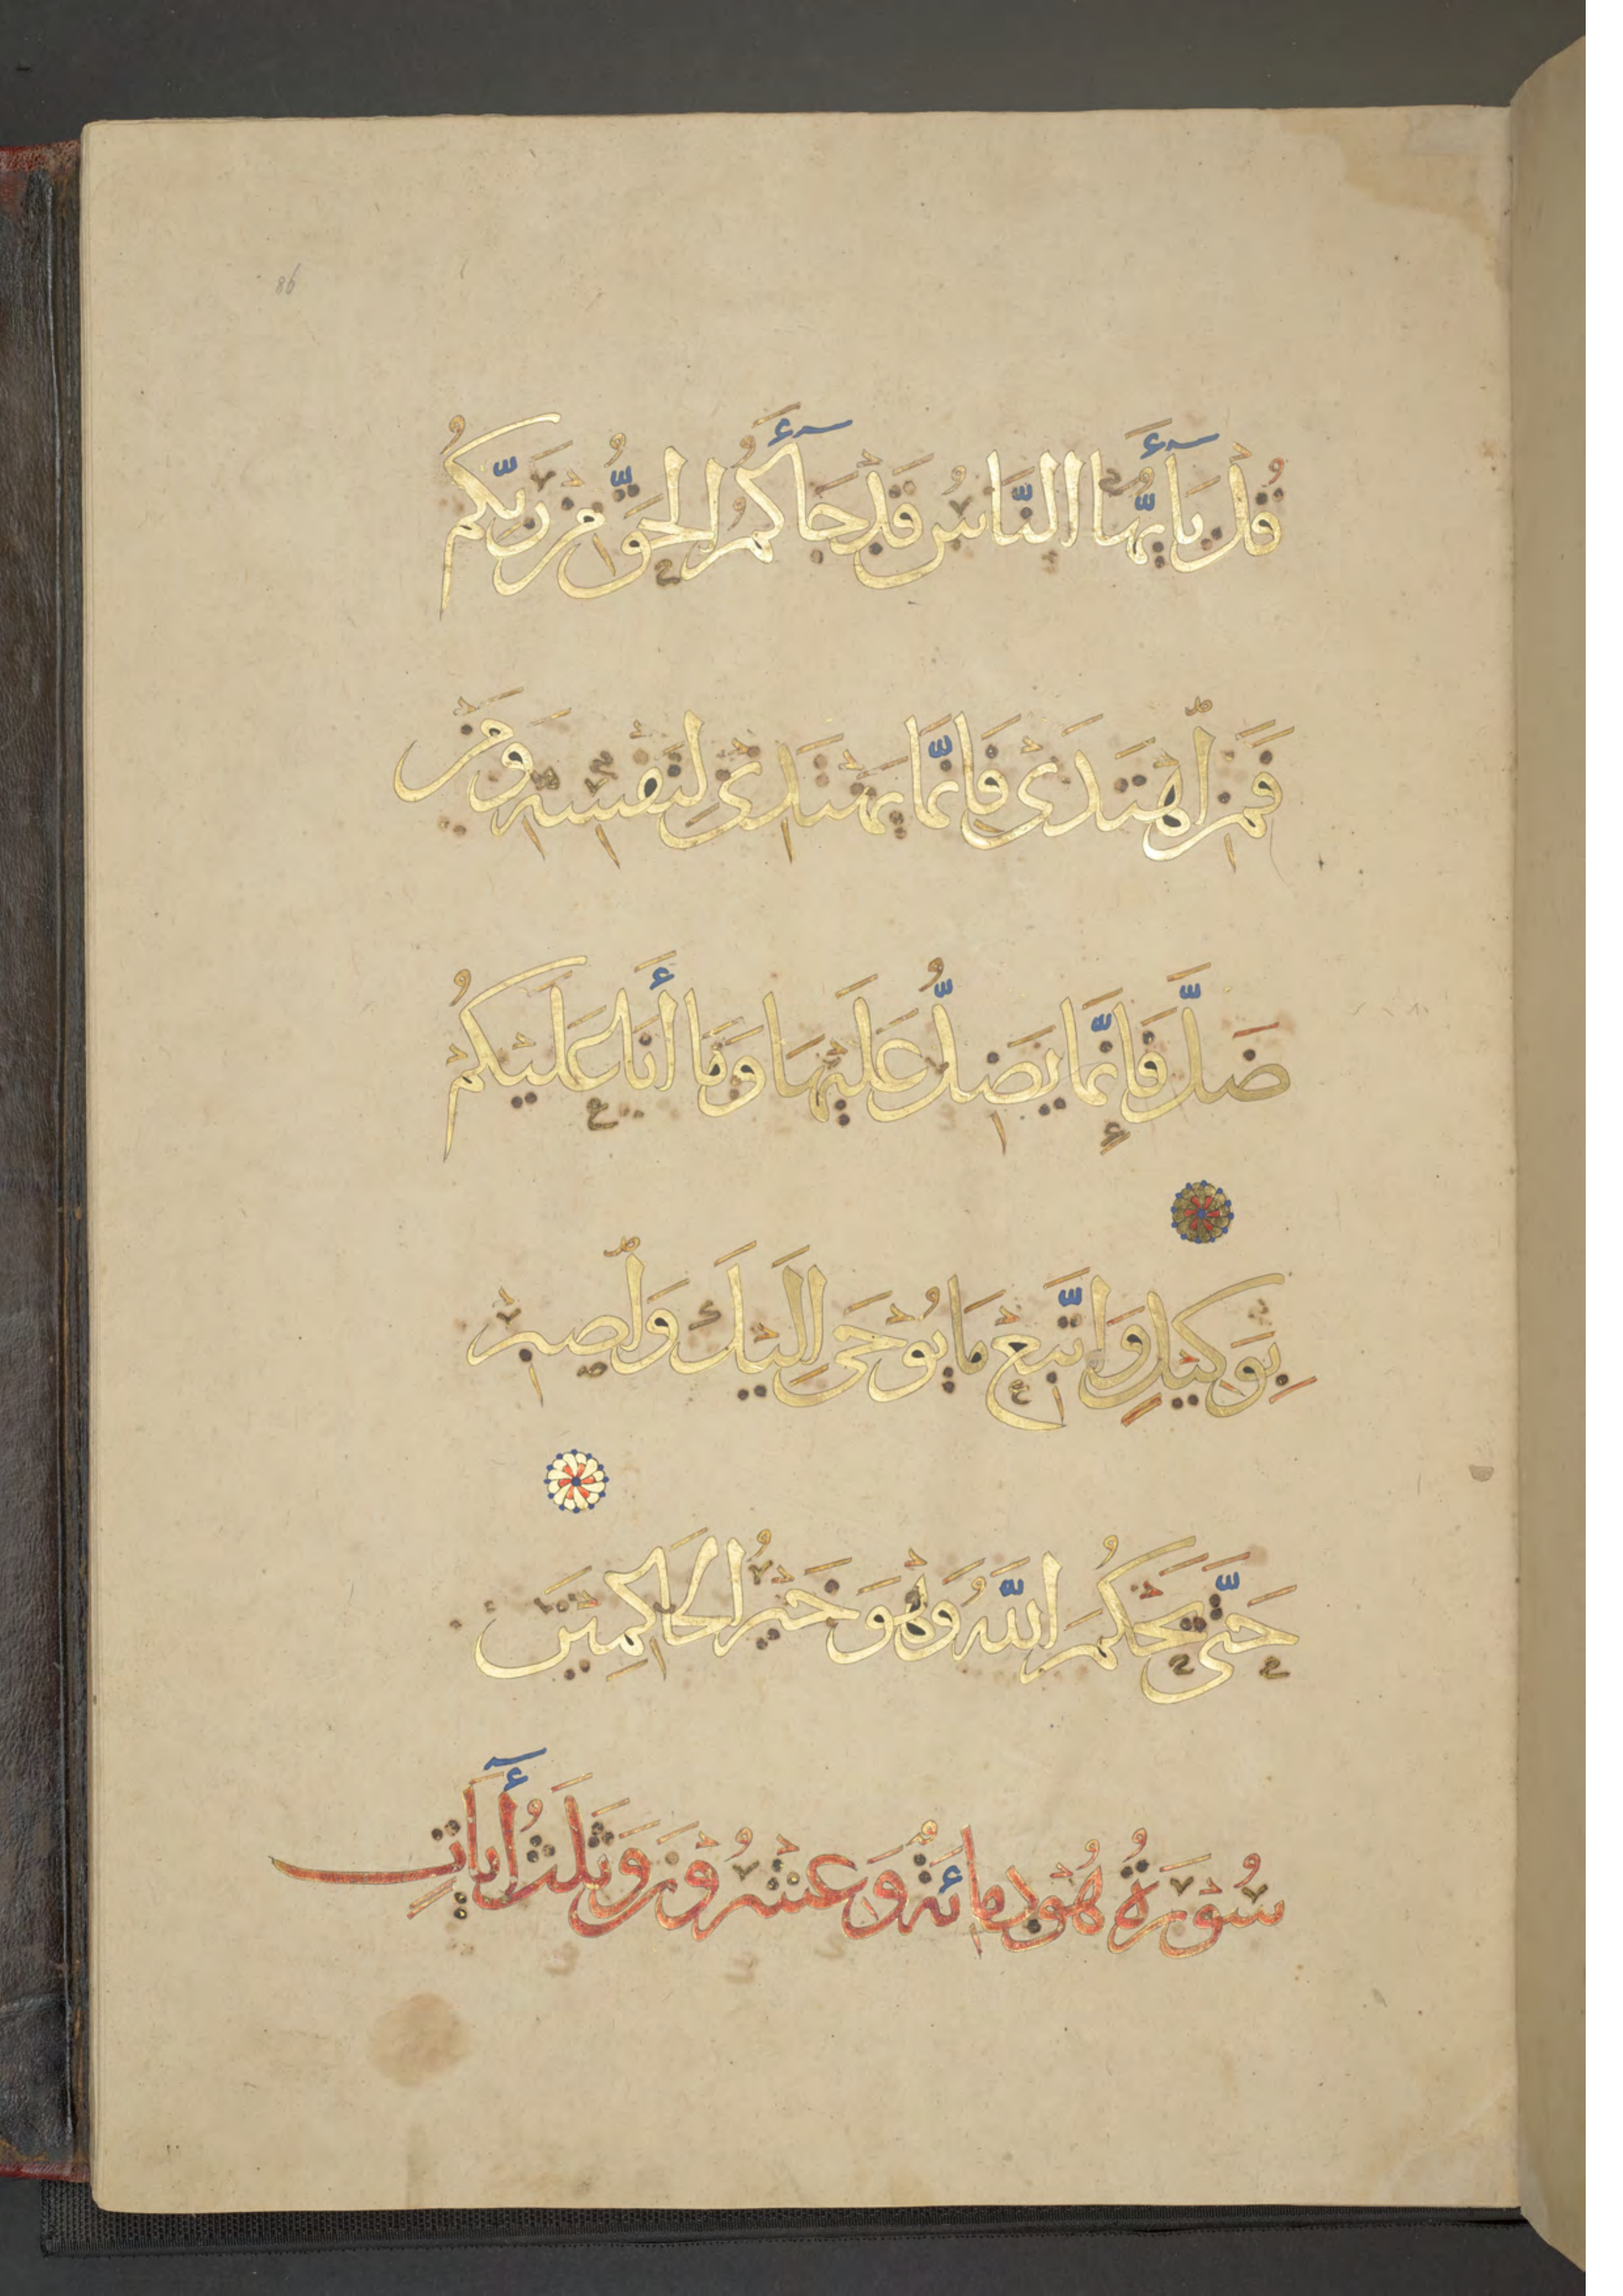 86
قُلْ يَآأَيُّهَا النَّاسُ قَدْ جَآأَكُمُ الْحَقُّ مِنْ رَبِّكُمُ
فَمَنِ اهْتَدَىْ فَاِنَّمَا يَهْتَدِىْ لِنَفْسِهِ وَمَنْ
ضَلَّ فَإِنَّمَا يَضِلُّ عَلَيْهَا وَمَا أَنَا عَلَيْكُمُ
بِوَكِيْلٍ وَاتَّبِعْ مَا يُوْحَى اِلَيْكَ وَاصْبِرْ
حَتَّى يَحْكُمَ اللَّهُ وَهْوَ خَيْرُ الْحَاكِمِيْنَ
سُوْرَةُ هُوْدٍ مِائَةٌ وَعِشْرُوْنَ وَثَلَثُ أٓيَاتٍ